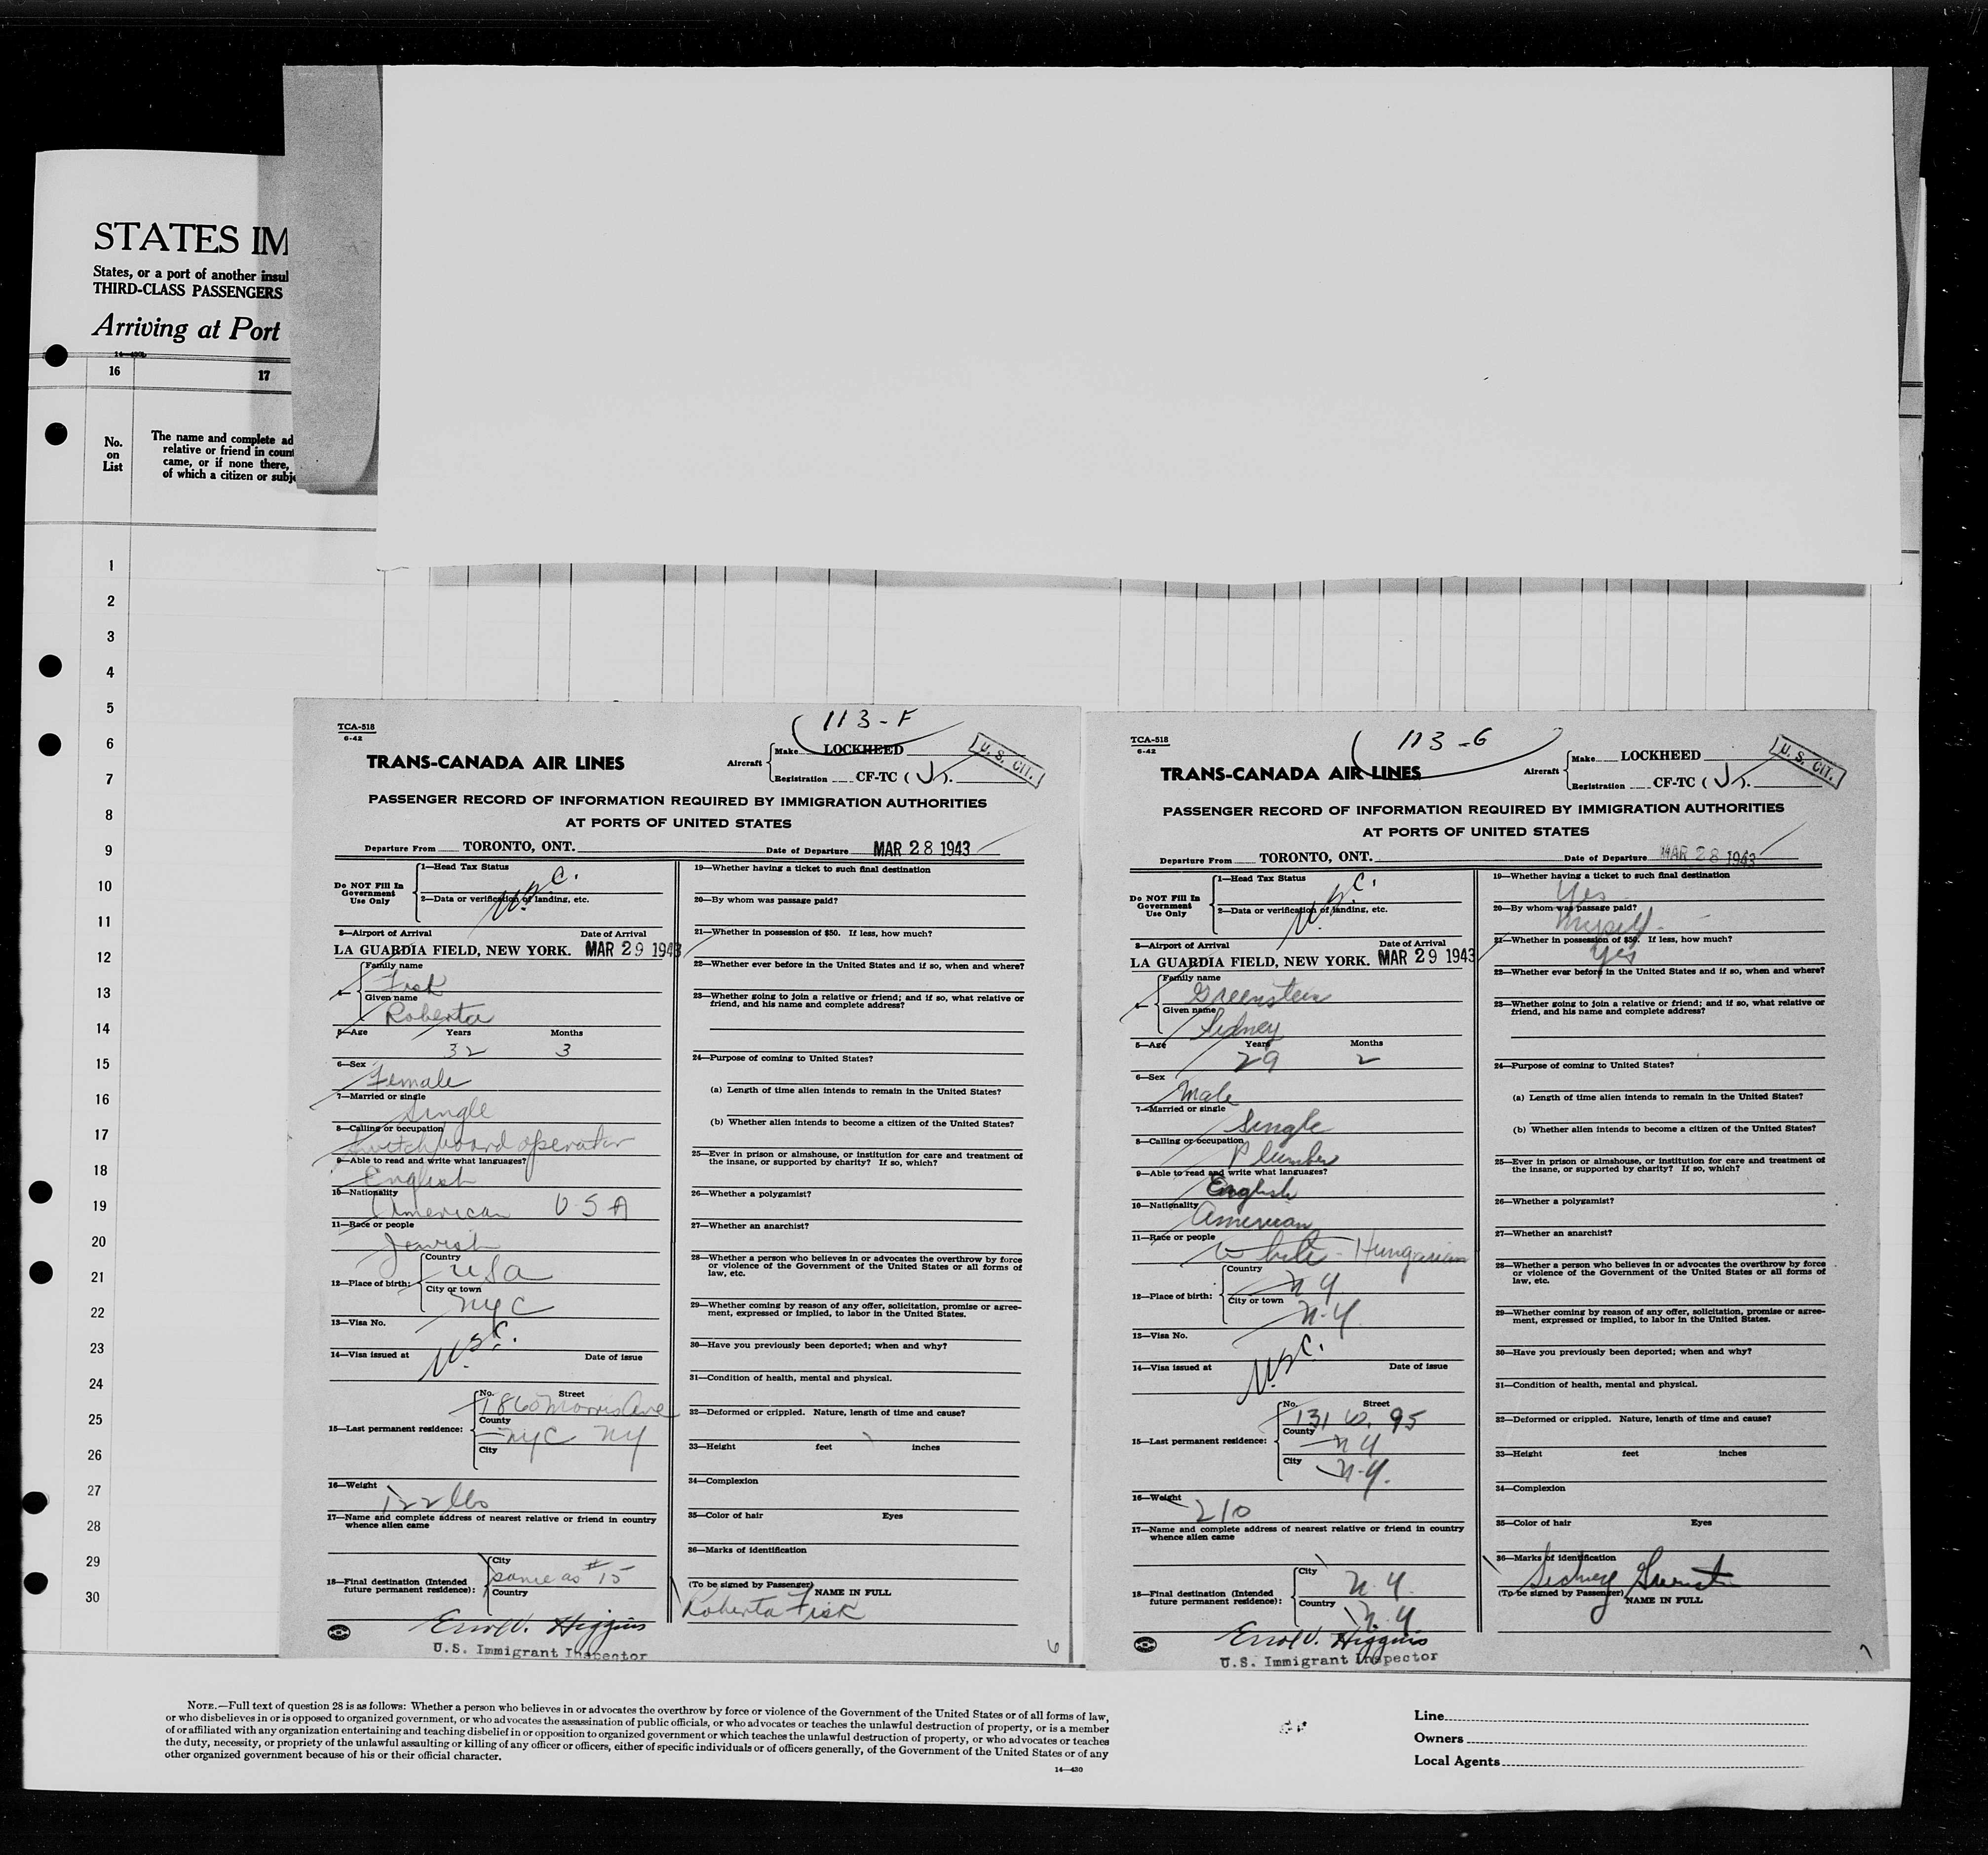 STATES IM
States, or a port of another insul
THIRD-CLASS PASSENGERS
Arriving at Port
14—430b
16 17
No.
on
List
The name and complete ad
relative or friend in count
came, or if none there,
of which a citizen or subje
1
2
3
4
5
6
7
8
9
10
11
12
13
14
15
16
17
18
19
20
21
22
23
24
25
26
27
28
29
30
113-F
TCA-518
6-42
TRANS-CANADA AIR LINES
Aircraft
Make LOCKHEED
Registration CF-TC ( J ).
U. S. CIT.
PASSENGER RECORD OF INFORMATION REQUIRED BY IMMIGRATION AUTHORITIES
AT PORTS OF UNITED STATES
Departure From TORONTO, ONT. Date of Departure MAR 28 1943
Do NOT Fill In
Government
Use Only
1—Head Tax Status
U.S.C.
2—Data or verification of landing, etc.
3—Airport of Arrival Date of Arrival
LA GUARDIA FIELD, NEW YORK. MAR 29 1943
4—
Family name
Fisk
Given name
Roberta
5—Age Years Months
32 3
6—Sex
Female
7—Married or single
Single
8—Calling or occupation
Switchboard operator
9—Able to read and write what languages?
English
10—Nationality
American USA
11—Race or people
Jewish
12—Place of birth:
Country
USA
City or town
NYC
13—Visa No.
U.S.C.
14—Visa issued at Date of issue
15—Last permanent residence:
No. Street
1860 Morris Ave
County
NYC NY
City
16—Weight
122 lbs
17—Name and complete address of nearest relative or friend in country
whence alien came
18—Final destination (Intended
future permanent residence):
City
same as #15
Country
Errol V. Higgins
U.S. Immigrant Inspector
19—Whether having a ticket to such final destination
20—By whom was passage paid?
21—Whether in possession of $50. If less, how much?
22—Whether ever before in the United States and if so, when and where?
23—Whether going to join a relative or friend; and if so, what relative or
friend, and his name and complete address?
24—Purpose of coming to United States?
(a) Length of time alien intends to remain in the United States?
(b) Whether alien intends to become a citizen of the United States?
25—Ever in prison or almshouse, or institution for care and treatment of
the insane, or supported by charity? If so, which?
26—Whether a polygamist?
27—Whether an anarchist?
28—Whether a person who believes in or advocates the overthrow by force
or violence of the Government of the United States or all forms of
law, etc.
29—Whether coming by reason of any offer, solicitation, promise or agree-
ment, expressed or implied, to labor in the United States.
30—Have you previously been deported; when and why?
31—Condition of health, mental and physical.
32—Deformed or crippled. Nature, length of time and cause?
33—Height feet inches
34—Complexion
35—Color of hair Eyes
36—Marks of identification
(To be signed by Passenger) NAME IN FULL
Roberta Fisk
6
113-G
TCA-518
6-42
TRANS-CANADA AIR LINES
Aircraft
Make LOCKHEED
Registration CF-TC ( J ).
U. S. CIT.
PASSENGER RECORD OF INFORMATION REQUIRED BY IMMIGRATION AUTHORITIES
AT PORTS OF UNITED STATES
Departure From TORONTO, ONT. Date of Departure MAR 28 1943
Do NOT Fill In
Government
Use Only
1—Head Tax Status
U.S.C.
2—Data or verification of landing, etc.
3—Airport of Arrival Date of Arrival
LA GUARDIA FIELD, NEW YORK. MAR 29 1943
4—
Family name
Greenstein
Given name
Sidney
5—Age Years Months
29 2
6—Sex
Male
7—Married or single
Single
8—Calling or occupation
Plumber
9—Able to read and write what languages?
English
10—Nationality
American
11—Race or people
White - Hungarian
12—Place of birth:
Country
N Y
City or town
N.Y.
13—Visa No.
U.S.C.
14—Visa issued at Date of issue
15—Last permanent residence:
No. Street
131 W. 95
County
N Y
City
N.Y.
16—Weight
210
17—Name and complete address of nearest relative or friend in country
whence alien came
18—Final destination (Intended
future permanent residence):
City
N.Y.
Country
N.Y
Errol V. Higgins
U.S. Immigrant Inspector
19—Whether having a ticket to such final destination
Yes
20—By whom was passage paid?
Myself
21—Whether in possession of $50. If less, how much?
Yes
22—Whether ever before in the United States and if so, when and where?
23—Whether going to join a relative or friend; and if so, what relative or
friend, and his name and complete address?
24—Purpose of coming to United States?
(a) Length of time alien intends to remain in the United States?
(b) Whether alien intends to become a citizen of the United States?
25—Ever in prison or almshouse, or institution for care and treatment of
the insane, or supported by charity? If so, which?
26—Whether a polygamist?
27—Whether an anarchist?
28—Whether a person who believes in or advocates the overthrow by force
or violence of the Government of the United States or all forms of
law, etc.
29—Whether coming by reason of any offer, solicitation, promise or agree-
ment, expressed or implied, to labor in the United States.
30—Have you previously been deported; when and why?
31—Condition of health, mental and physical.
32—Deformed or crippled. Nature, length of time and cause?
33—Height feet inches
34—Complexion
35—Color of hair Eyes
36—Marks of identification
Sidney
(To be signed by Passenger) NAME IN FULL
7
NOTE.—Full text of question 28 is as follows: Whether a person who believes in or advocates the overthrow by force or violence of the Government of the United States or of all forms of law,
or who disbelieves in or is opposed to organized government, or who advocates the assassination of public officials, or who advocates or teaches the unlawful destruction of property, or is a member
of or affiliated with any organization entertaining and teaching disbelief in or opposition to organized government or which teaches the unlawful destruction of property, or who advocates or teaches
the duty, necessity, or propriety of the unlawful assaulting or killing of any officer or officers, either of specific individuals or of officers generally, of the Government of the United States or of any
other organized government because of his or their official character.
14—430
Line
Owners
Local Agents